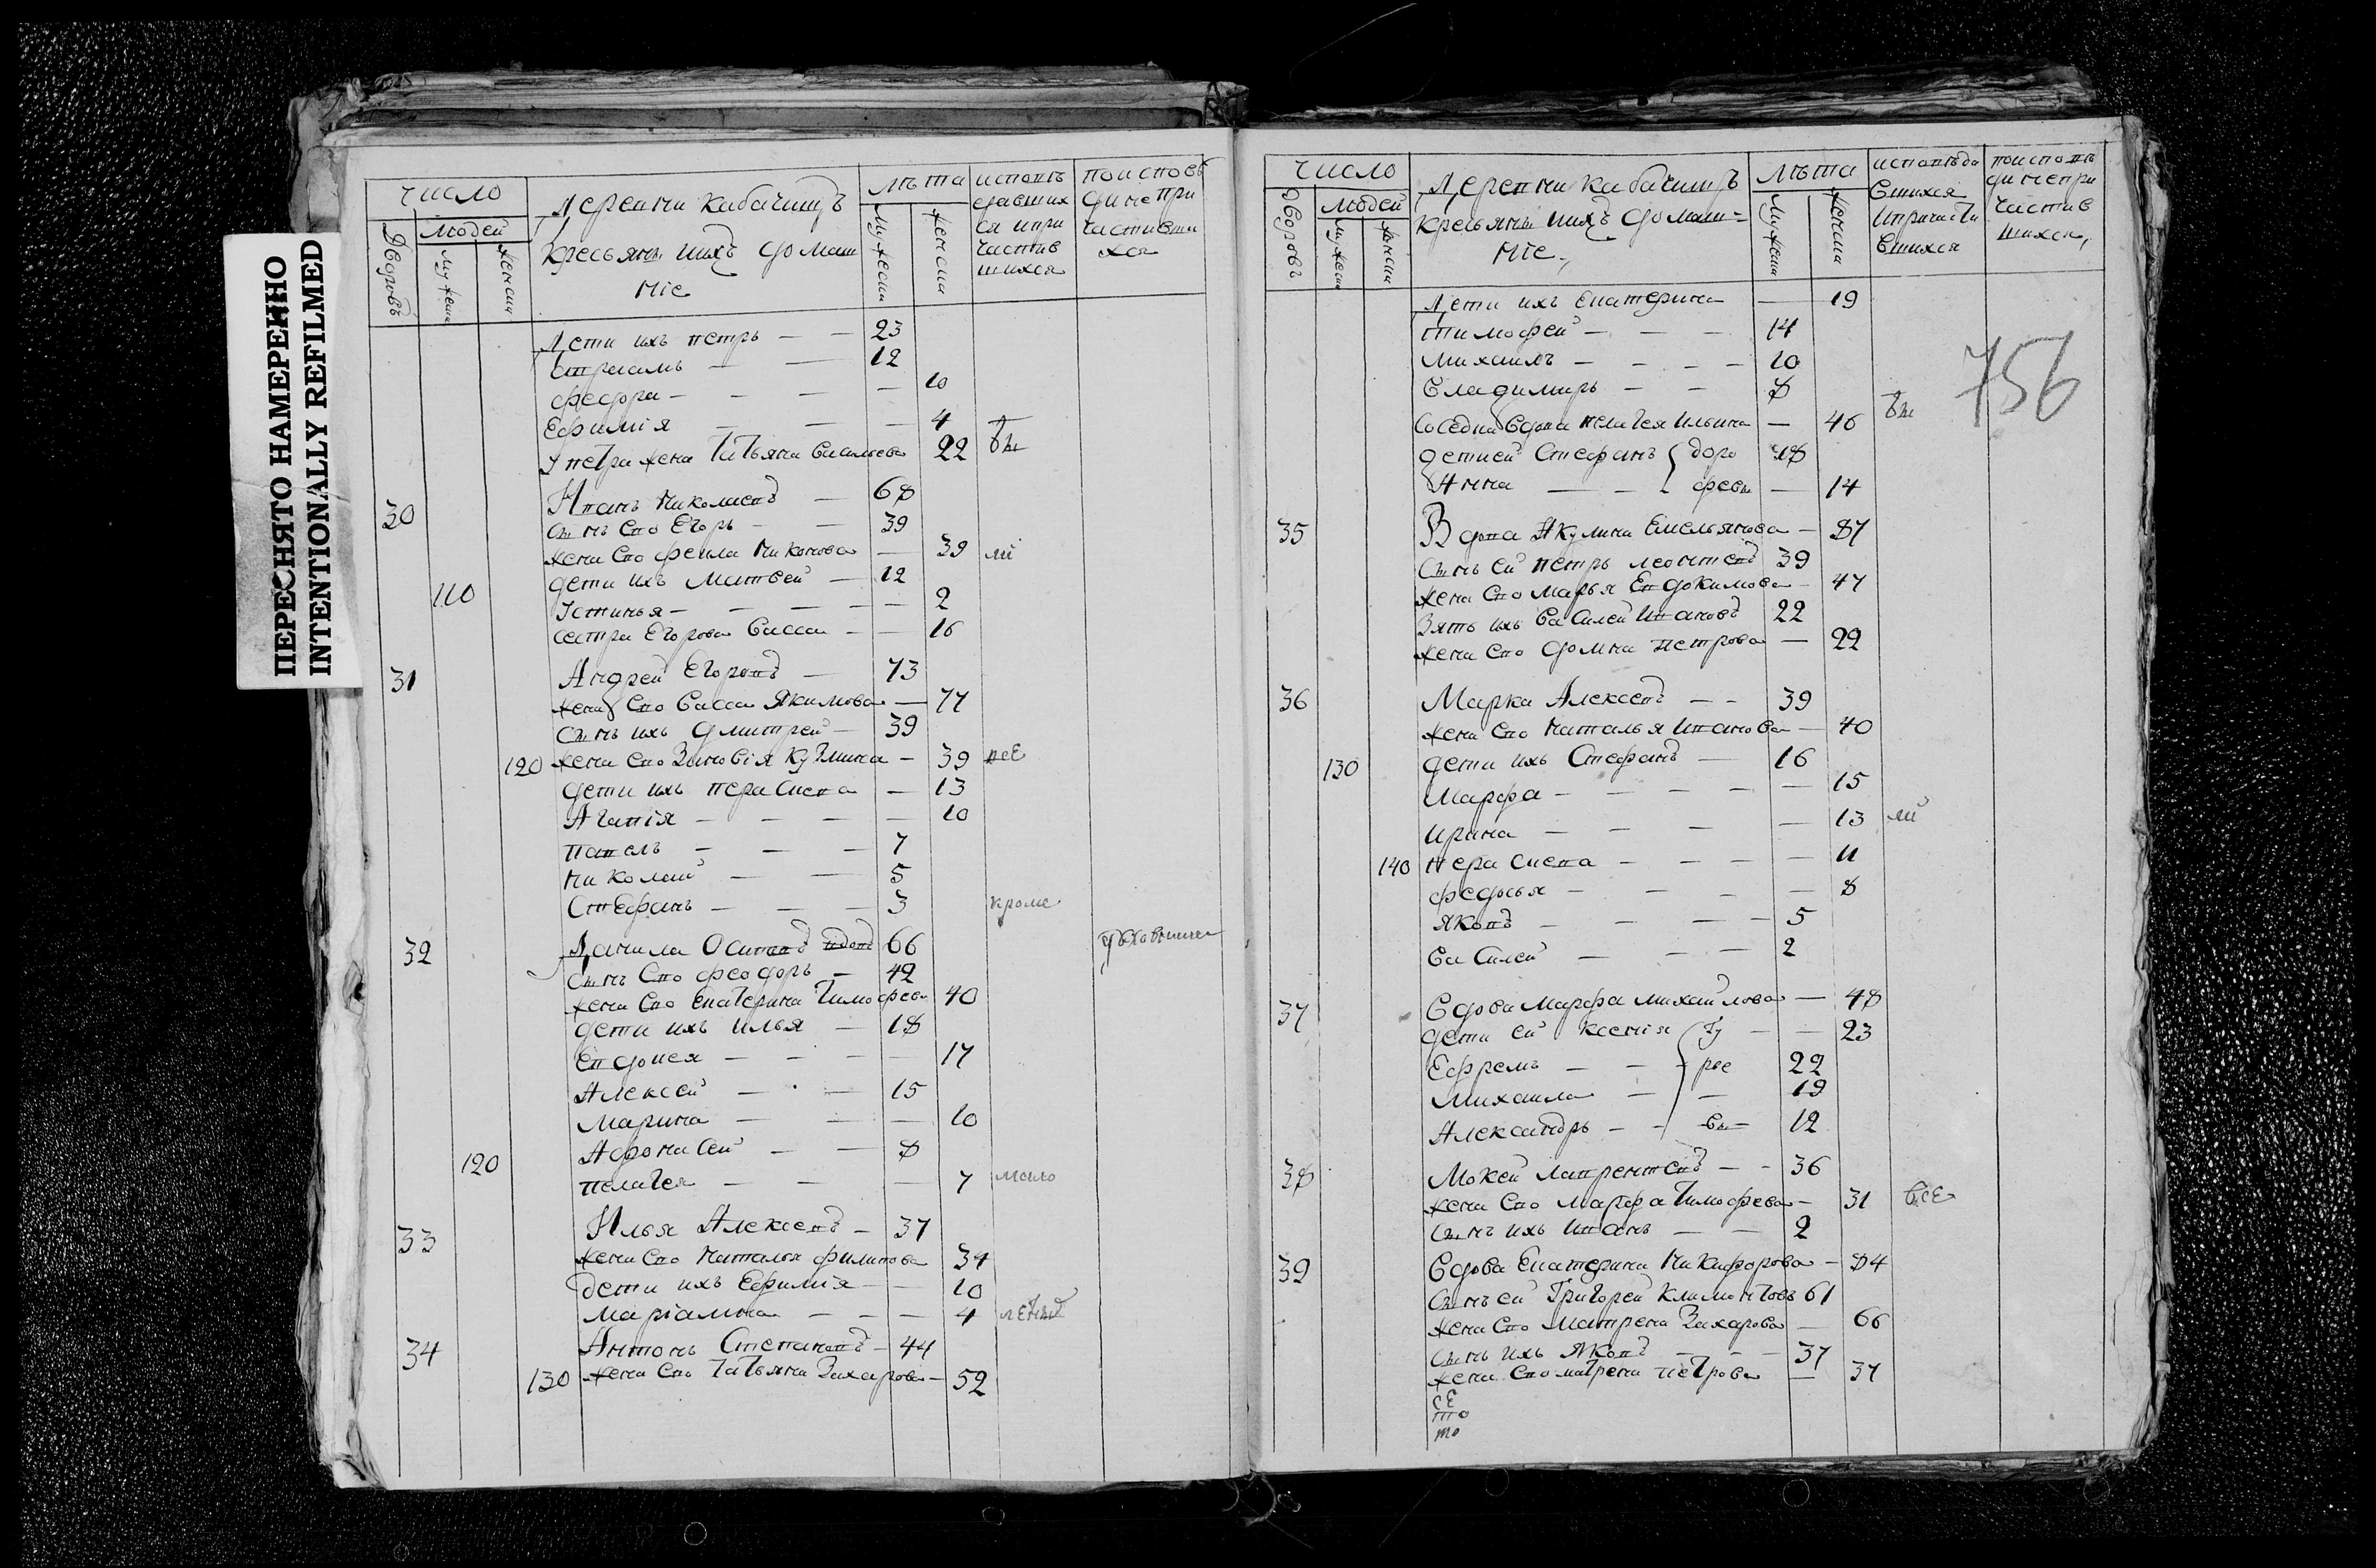 ПЕРЕСНЯТО НАМЕРЕННО
INTENTIONALLY REFILMED
число
Дворовъ
людей
мужеска
женска
Деревни Кабачищъ
кресьяны ихъ домаш
ніе
лѣта
мужеска
женска
исповѣ
давших
ся и при
частив
шихся
по испов
ди не при
частивши
хся
Дети ихъ петръ — — 23
Авраамъ — — 12
федора — — — — 10
Ефимія — — — 4
У петра жена татьяна василева 22 бы
30 Иванъ Николаевъ — 68
сынъ Его Егоръ — — 39
жена Его фекла Никонова — 39 ли
110 дети ихъ Матвей — 12
Устинья — — — — — 2
сестра Егорова Васса — — 16
31 Андрей Егоровъ — 73
жена Его Васса Якимова — 77
сынъ ихъ Дмитрей — 39
120 жена Его Зиновія Кузмина — 39 все
дети ихъ Параскева — 13
Агапія — — — — 10
Павелъ — — — 7
Николай — — 5
Стефанъ — — — 3 кроме
32 Данила Осиповъ вдовъ 66
сынъ Его феодоръ — 42
жена Его Екатерина Тимофеева 40
дети ихъ Илья — 18
Евдокея — — — — 17
Алексей — — 15
Марина — — — 10
Афонасей — — 8
120
Пелагея — — — 7 мало
33 Илья Алексеевъ — 37
жена Его Наталья филипова 34
дети ихъ Ефимія — — 10
Маріамна — — — 4 летныхъ
34 Антонъ Степановъ — 44
130 жена Его Татьяна Захарова — 52
число
Дворовъ
людей
мужеска
женска
Деревни Кабачищъ
кресьяны ихъ домаш=
ніе
лѣта
мужеска
женска
исповѣда
вшихся
и причасти
вшихся
по исповѣ
ди не при
частив
шихся
756
Дети ихъ Екатерина — 19
Тимофей — — — 14
Михаилъ — — — — 10
Владимиръ — — 8
соседка вдова Пелагея Ильина — 46 бы
детией Стефанъ доро 18
Анна — — февы — 14
35 Вдова Акулина Емельянова — 87
сынъ ей петръ леонтевъ 39
жена Его Марья Евдокимова — 47
Зять ихъ Василей Ивановъ 22
жена Его Домна Петрова — 22
36 Марка Алексевъ — — 39
жена Его Наталья Иванова — 40
130 дети ихъ Стефанъ — 16
Марфа — — — — — 15
Ирина — — — — 13 ли
140 Параскева — — — — 11
федосья — — — — 8
Яковъ — — — — 5
Василей — — — 2
37 Вдова Марфа Михайлова — 48
дети ей Ксенія Гу — — 23
Ефремъ — — рье 22
Михаила — — 19
Александръ — — вы — 12
38 Мокей Лаврентевъ — — 36
жена Его Марфа Тимофева — 31 все
сынъ ихъ Иванъ — — 2
39 Вдова Екатерина Никифорова — 84
сынъ ей Григорей Климонтовъ 61
жена Его Матрена Захарова — 66
сынъ ихъ Яковъ — — 37
жена Его матрена петрова — 37
се
то
то